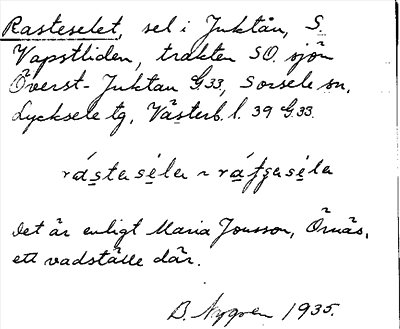 Rasteselet, sel i Juktån, S.
Vapstliden, trakten SO. sjön
Överst-Juktan G33, Sorsele sn,
Lycksele tg, Västerb. l. 39 G.33.
rástaséla ~ ráfgaséla
det är enligt Maria Jonsson, Örnäs,
ett vadställe där.
B. Nygren 1935.